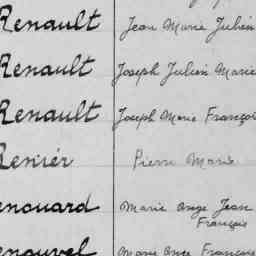 Renault Jean Marie Julien
Renault Joseph Julien Marie
Renault Joseph Marie Françoi
Reniér Pierre Marie
enouard Marie Ange Jean
François
enouvel Marie Ange François